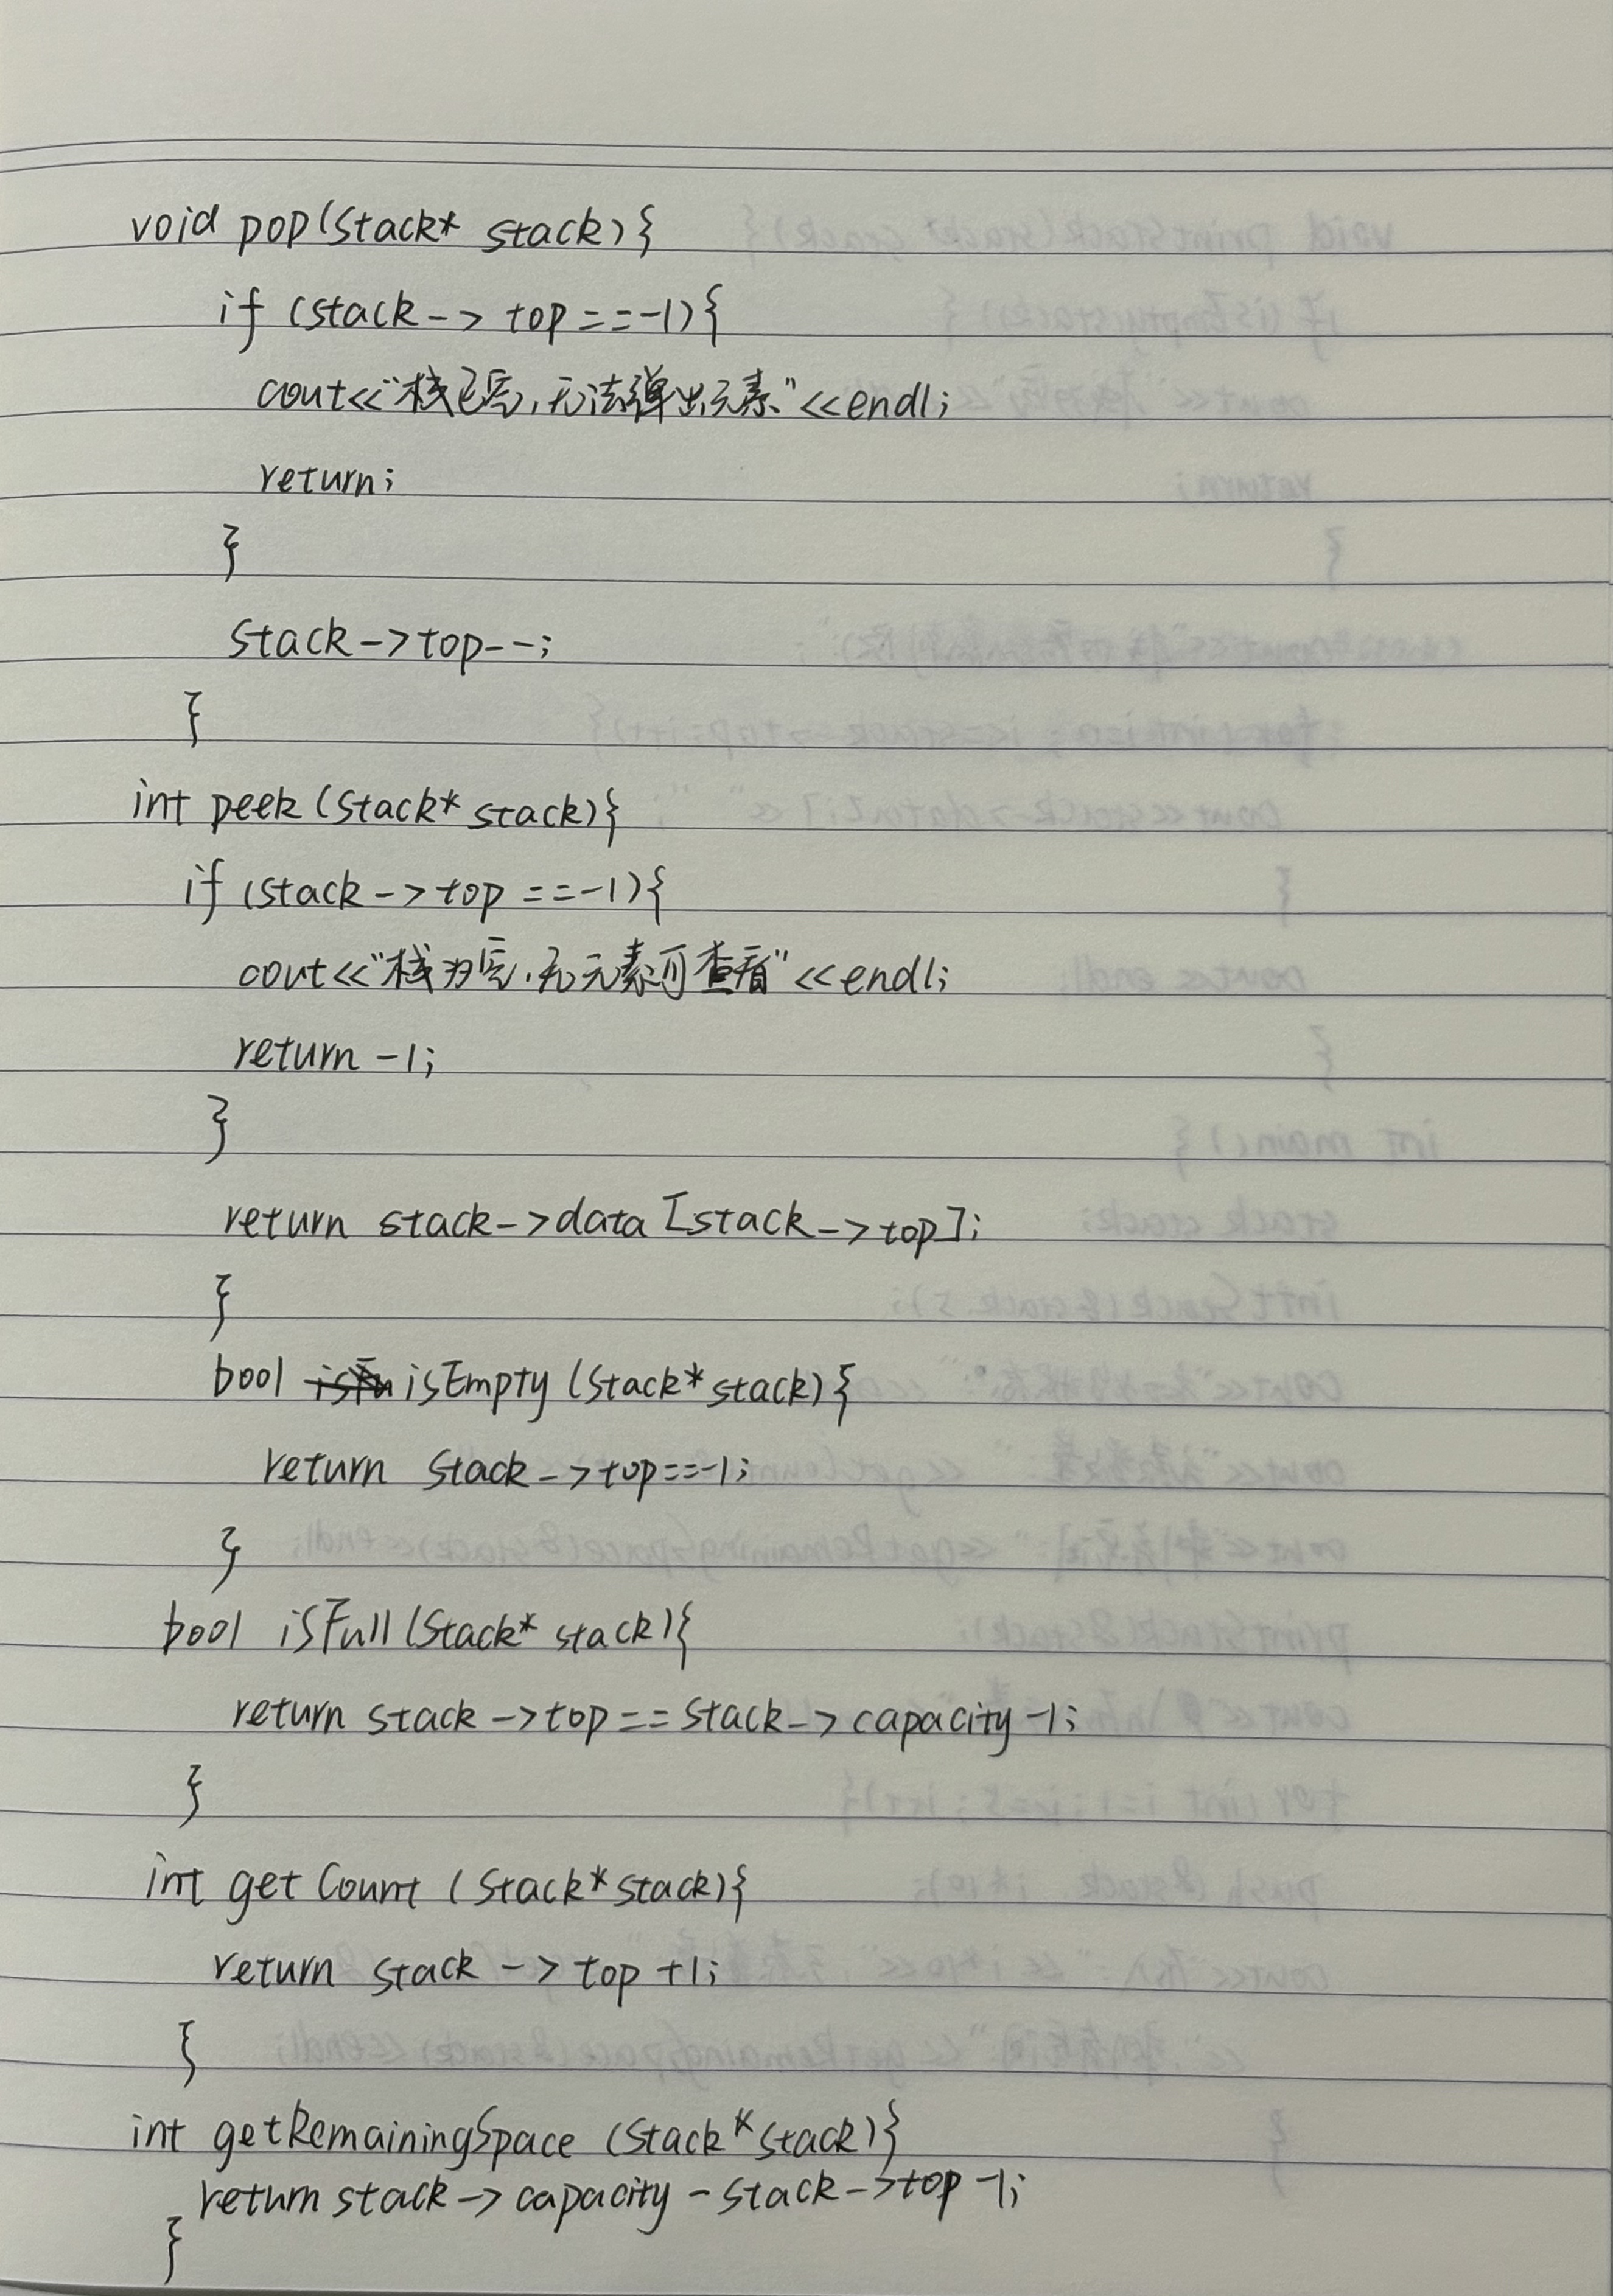 void pop(Stack* stack){
if (stack -> top == -1){
cout<<"栈已空,无法弹出元素"<<endl;
return;
}
stack->top--;
}
int peek (Stack* stack){
if (stack -> top == -1){
cout<<"栈为空,无元素可查看"<<endl;
return -1;
}
return stack->data [stack->top];
}
bool isEmpty (Stack* stack){
return stack -> top==-1;
}
bool isFull (Stack* stack){
return stack -> top == stack -> capacity -1;
}
int getCount (Stack* stack){
return stack -> top +1;
}
int getRemainingSpace (Stack* stack){
return stack -> capacity - stack -> top -1;
}